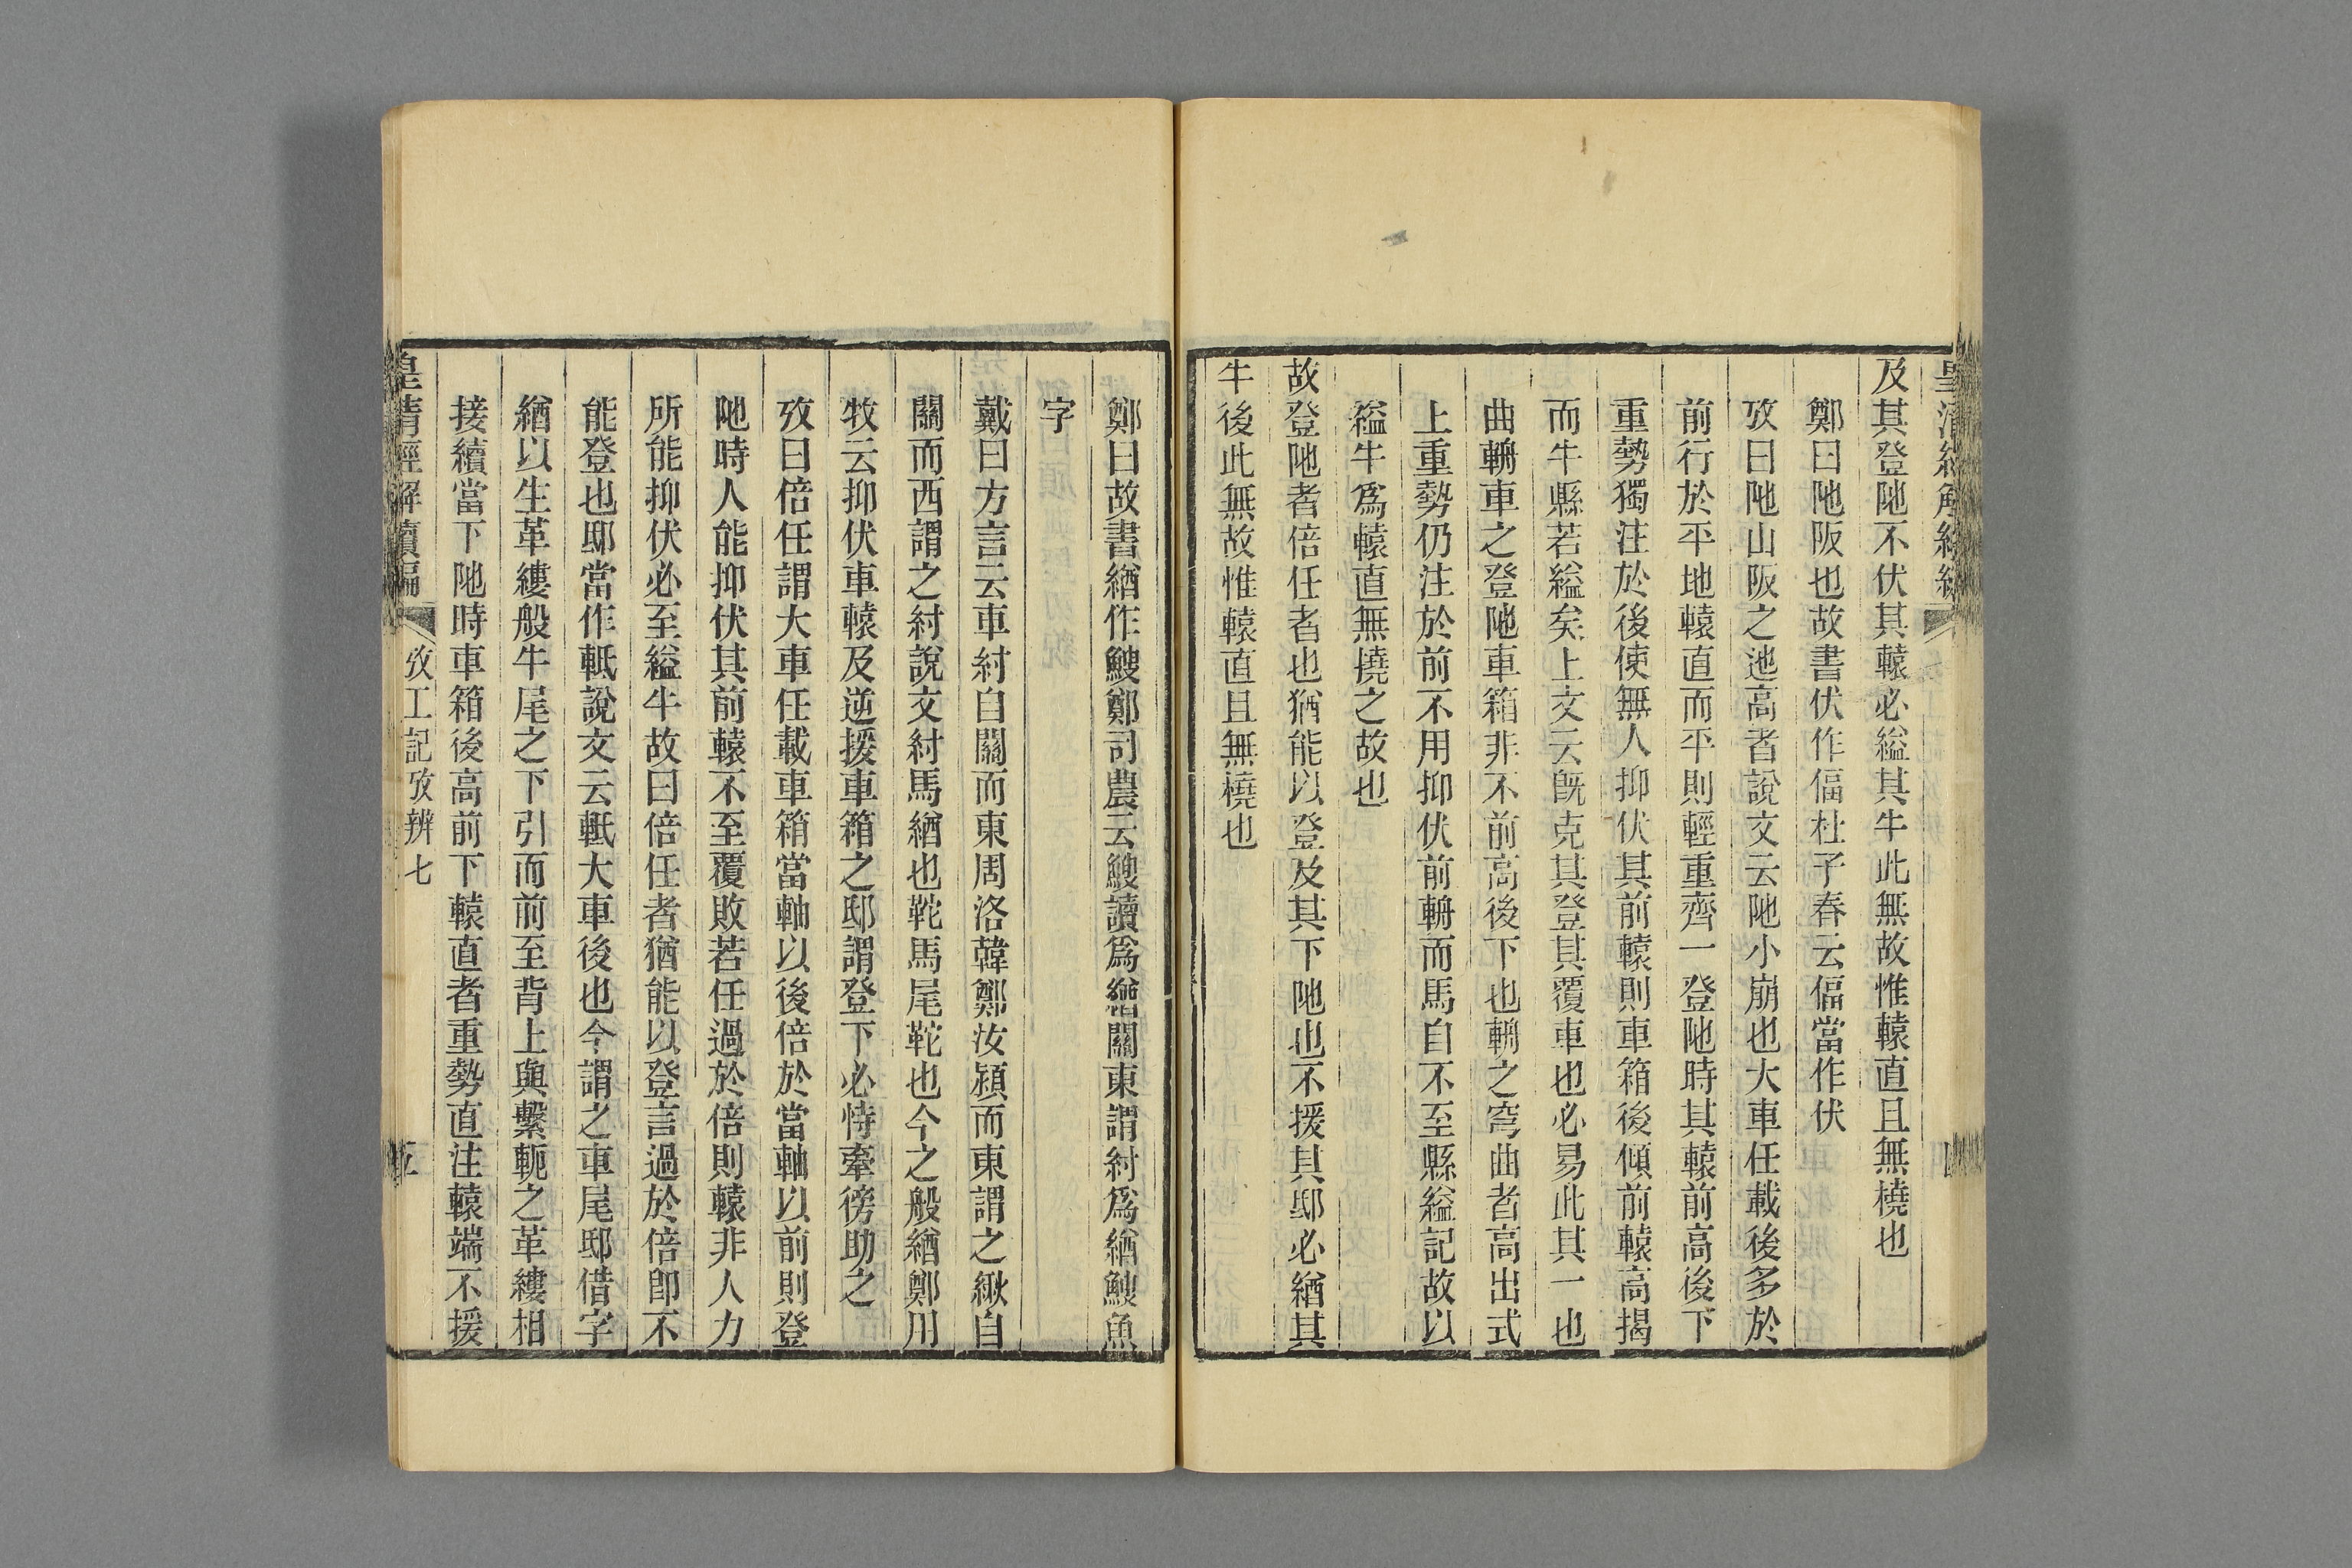 及其登阤不伏其轅必縊其牛此無故惟轅直且無橈也
鄭曰阤阪也故書伏作偪杜子春云偪當作伏
攷曰阤山阪之迆高者說文云阤小崩也大車任載後多於
前行於平地轅直而平則輕重齊一登阤時其轅前高後下
重勢獨注於後使無人抑伏其前轅則車箱後傾前轅高揭
而牛縣若縊矣上文云旣克其登其覆車也必易此其一也
曲輈車之登阤車箱非不前高後下也輈之穹曲者高出式
上重勢仍注於前不用抑伏前輈而馬自不至縣縊記故以
縊牛爲轅直無撓之故也
故登阤者倍任者也猶能以登及其下阤也不援其邸必緧其
牛後此無故惟轅直且無橈也
鄭曰故書緧作鰌鄭司農云鰌讀爲緧關東謂紂爲緧鰌魚
字
戴曰方言云車紂自關而東周洛韓鄭汝潁而東謂之緧自
關而西謂之紂說文紂馬緧也鞁馬尾鞁也今之般緧鄭用
牧云抑伏車轅及逆援車箱之邸謂登下必恃牽徬助之
攷曰倍任謂大車任載車箱當軸以後倍於當軸以前則登
阤時人能抑伏其前轅不至覆敗若任過於倍則轅非人力
所能抑伏必至縊牛故曰倍任者猶能以登言過於倍卽不
能登也邸當作軧說文云軧大車後也今謂之車尾邸借字
緧以生革縷般牛尾之下引而前至背上與繫軛之革縷相
接續當下阤時車箱後高前下轅直者重勢直注轅端不援
皇清經解續編 攷工記攷辨七